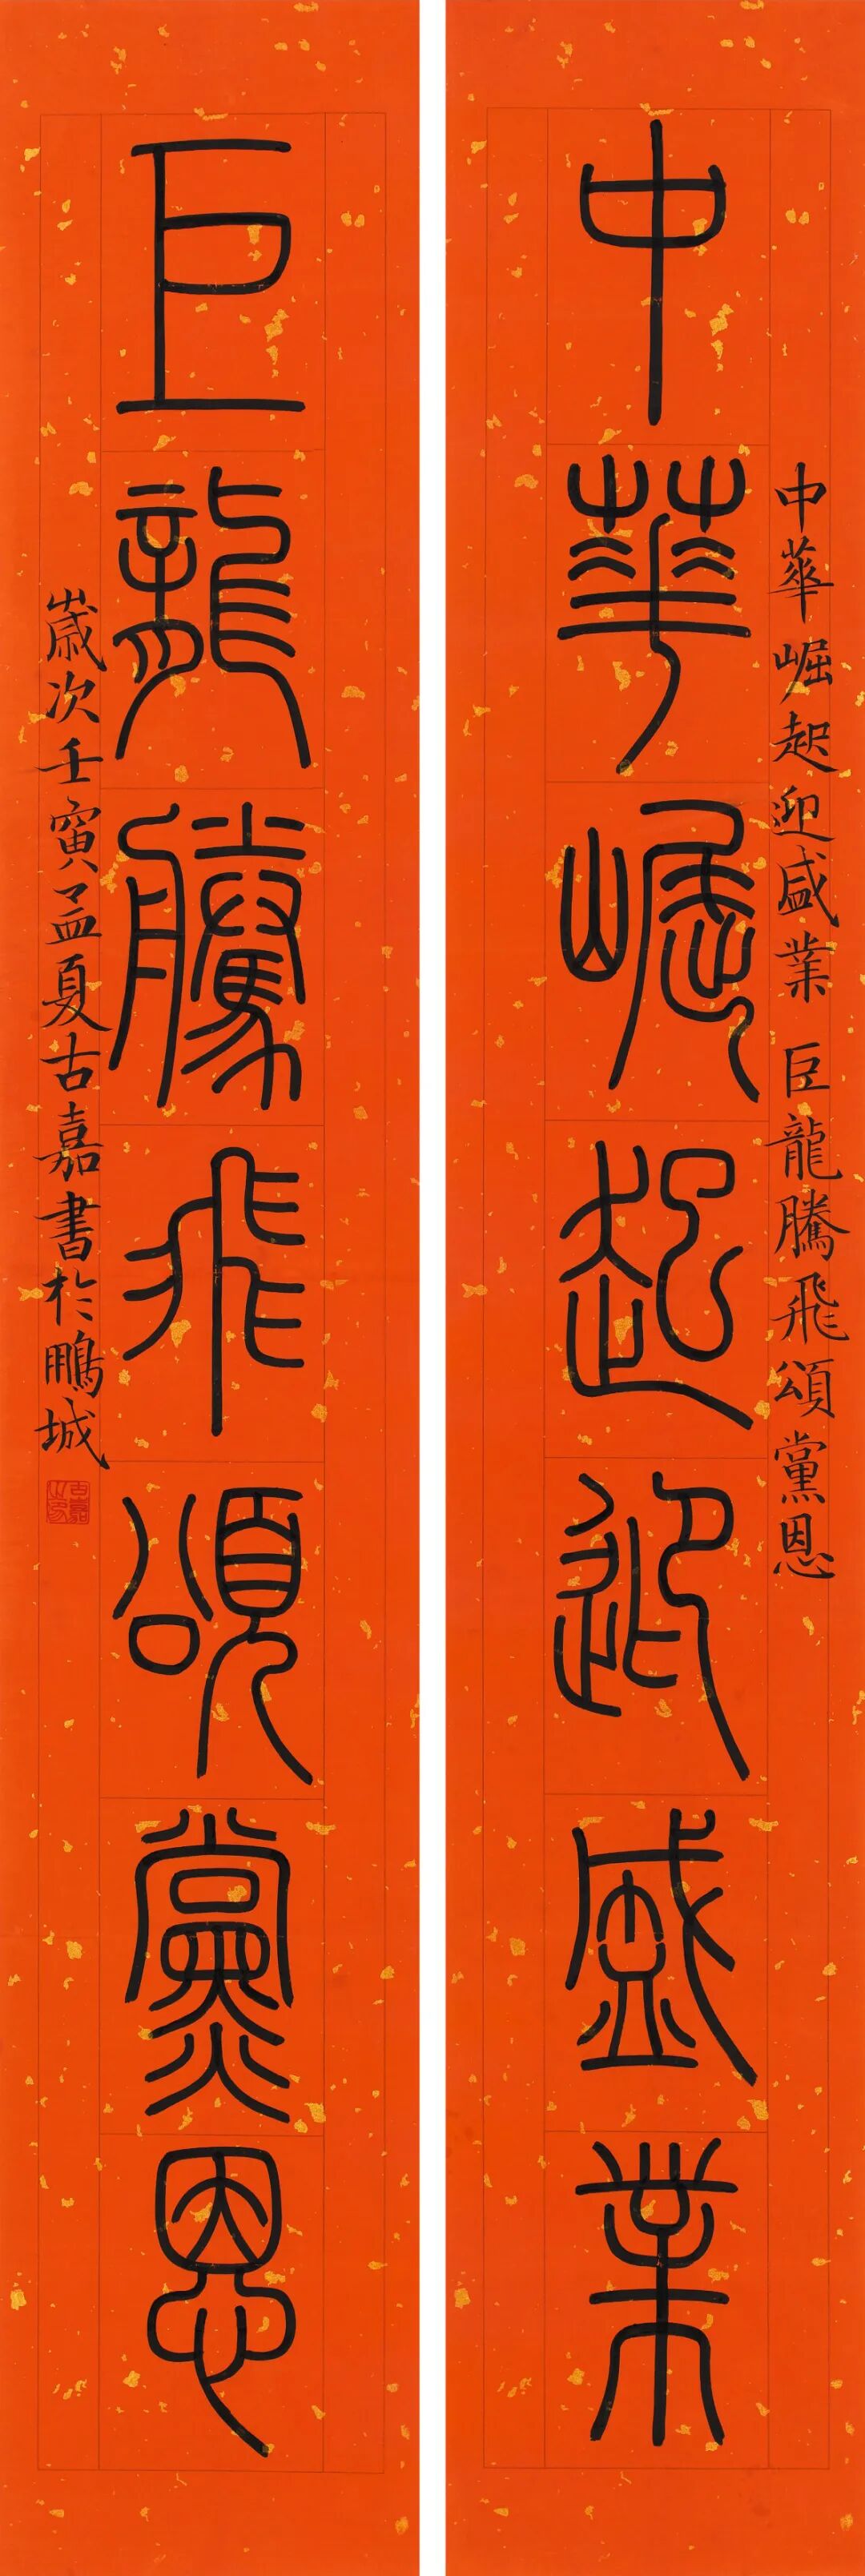 中華崛起迎盛業
中華崛起迎盛業 巨龍騰飛頌黨恩
巨龍騰飛頌黨恩
歲次壬寅孟夏古嘉書於鵬城
古嘉之印